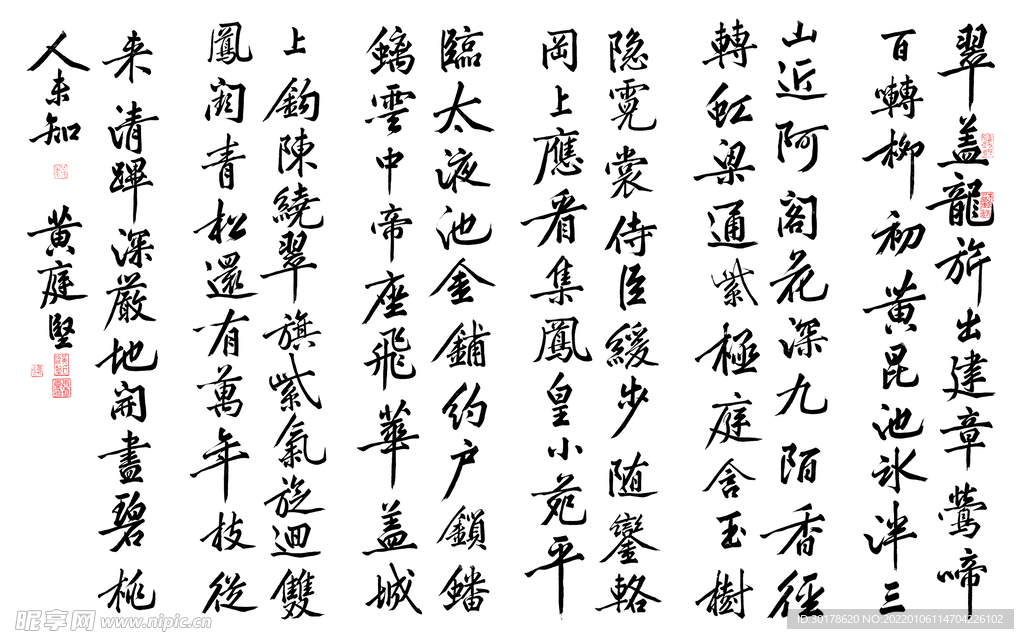 翠盖龍旂出建章鶯啼
百囀柳初黄昆池氷泮三
山近阿閣花深九陌香徑
轉虹梁通紫極庭含玉樹
隐霓裳侍臣緩步随鑾輅
岡上應看集鳳皇小苑平
臨太液池金鋪約户鎖蟠
螭雲中帝座飛華盖城
上鈎陳繞翠旗紫氣旋迴雙
鳳闕青松還有萬年枝從
来清蹕深嚴地開盡碧桃
人未知 黄庭堅
昵享网 www.nipic.cn
ID:30178620 NO:20220106114704226102